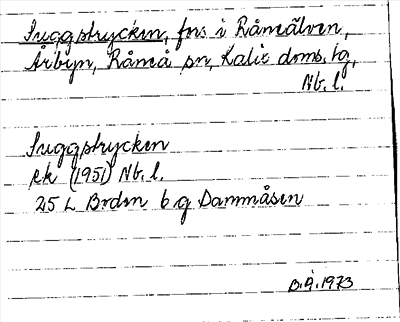 Suggstrycken, frs i Råneälven,
Årbyn, Råneå sn, Kalix doms. tg,
Nb. l.
Suggstrycken
ek (1951) Nb. l.
25 L Boden b g Dammåsen
B.Å. 1973